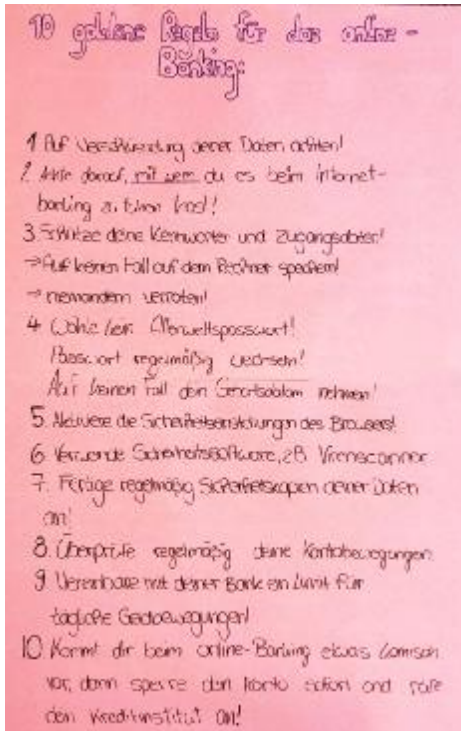 10 goldene Regeln für das online-
Banking:
1 Auf Verschlüsselung deiner Daten achten!
2. Achte darauf, mit wem du es beim internet-
banking zu tun hast!
3. Schütze deine Kennwörter und Zugangsdaten!
→ Auf keinen Fall auf dem Rechner speichern!
→ niemandem verraten!
4 Wähle kein Allerweltspasswort!
Passwort regelmäßig wechseln!
Auf keinen Fall dein Geburtsdatum nehmen!
5. Aktiviere die Sicherheitseinstellungen des Browsers!
6 Verwende Sicherheitssoftware, zB Virenscanner
7. Fertige regelmäßig Sicherheitskopien deiner Daten
an!
8. Überprüfe regelmäßig deine Kontobewegungen
9 Vereinbare mit deiner Bank ein Limit für
tägliche Geldbewegungen!
10. Kommt dir beim online-Banking etwas komisch
vor, dann sperre dein Konto sofort und rufe
dein Kreditinstitut an!